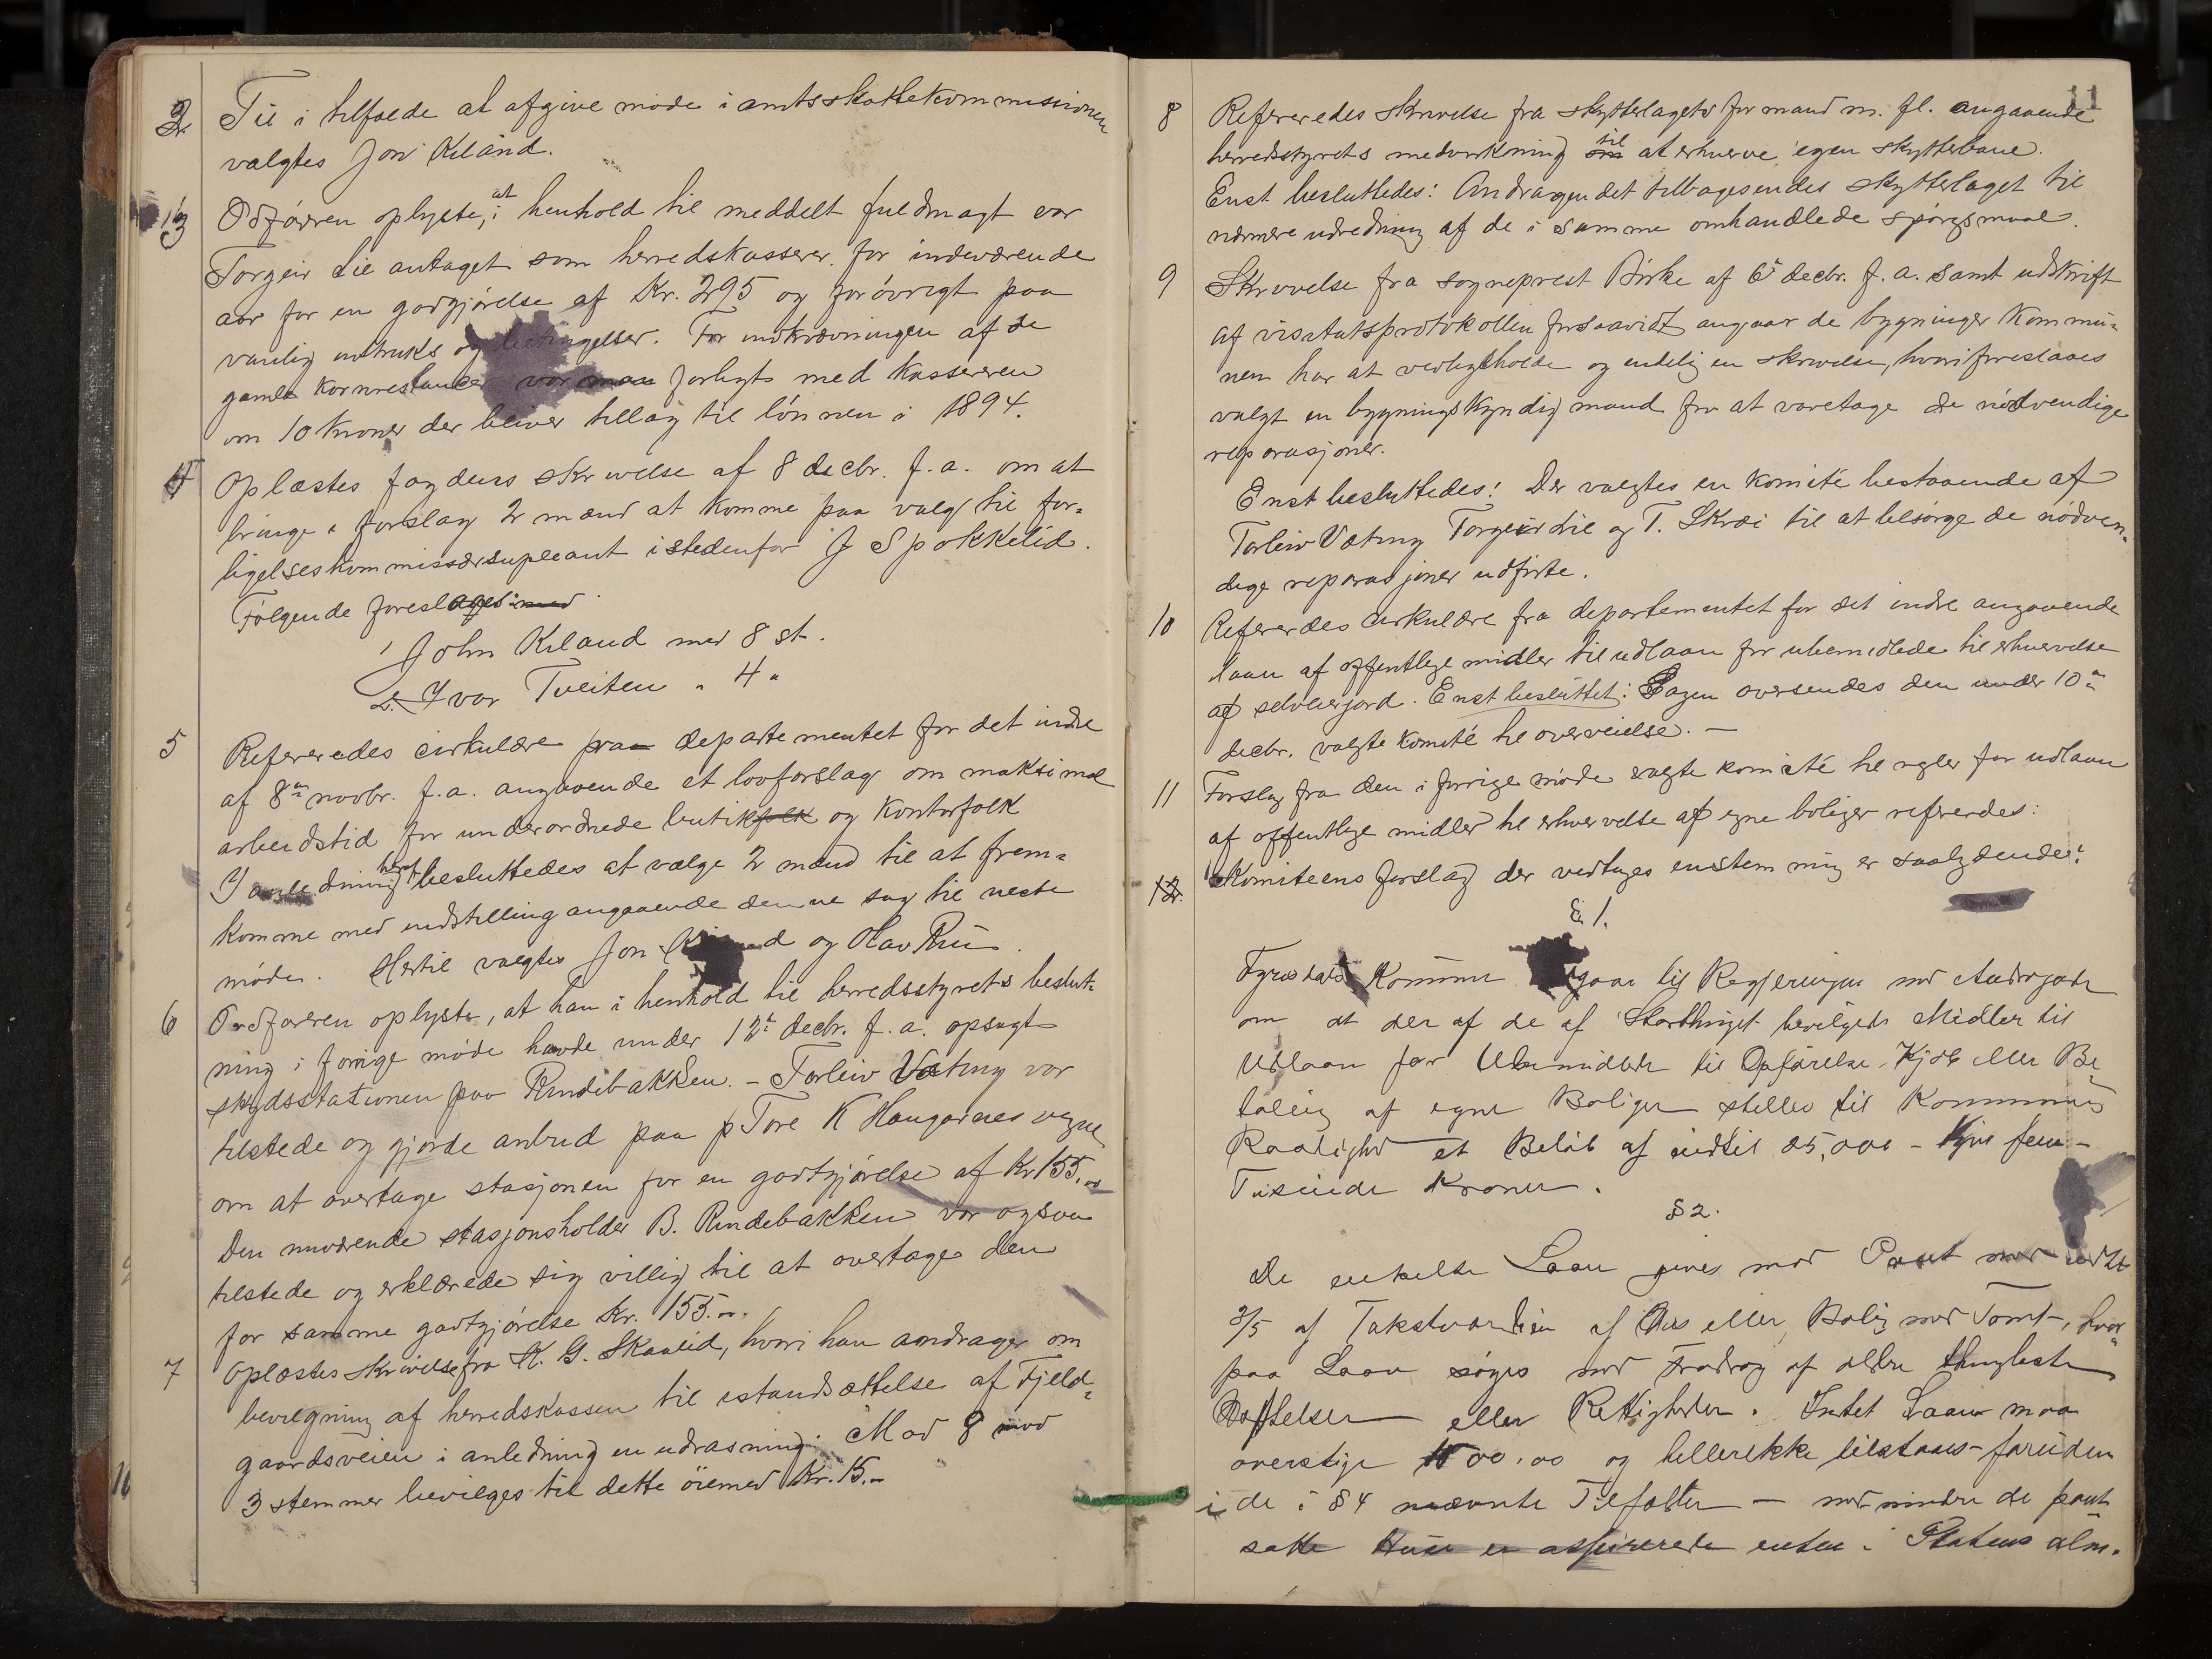 2. Til i tilfælde at afgive møde i amtsskattekommissionen
valgtes Jon Kiland.
3 Ordføreren oplyste, at i henhold til meddelt fuldmagt var
Torgeir Lie antaget som herredskasserer for indeværende
aar for en godgjørelse af Kr. 295 og forøvrigt paa
vanlig instruks og betingelser. For indkrævningen af de
gamle kornrestancer var man forligt med kassereren
om 10 kroner der bliver tillæg til lønnen i 1894.
4 Oplæstes fogdens skrivelse af 8 decbr. f.a. om at
bringe i forslag 2 mænd at komme paa valg til for-
ligelseskommissærsupleant istedenfor J Spokkelid.
Følgende foresloges med
1 John Kiland med 8 st.
2. Ivar Tveiten " 4 "
5 Refereredes cirkulære fra departementet for det indre
af 8de novbr. f.a. angaaende et lovforslag om maksimal
arbeidstid for underordnede butikfolk og Kontorfolk
I anledning heraf besluttedes at vælge 2 mænd til at frem-
komme med indstilling angaaende denne sag til neste
møde. Hertil valgtes Jon Kiland og Olav
6 Ordføreren oplyste, at han i henhold til herredsstyrets beslut-
ning i forrige møde havde under 12te decbr. f.a. opsagt
skydsstationen paa Rindebakken. – Torleiv Vætting var
tilstede og gjorde anbud paa Tore K Haugarnes vegne
om at overtage stasjonen for en godtgjørelse af Kr 155.00
Den nuværende stasjonsholder B. Rindebakken var ogsaa
tilstede og erklærede sig villig til at overtage den
for samme godtgjørelse Kr. 155.00.
7 Oplæstes skrivelse fra K. G. Skaalid, hvori han andrager om
bevilgning af herredskassen til istandsættelse af Fjeld-
gaardsveien i anledning en udrasning. Mod 8 mod
3 stemmer bevilges til dette øiemed Kr. 15.–
11
8 Refereredes skrivelse fra skytterlagets formand m. fl. angaaende
herredsstyrets medvirkning til at erhverve egen skytterbane.
Enst besluttedes: Andragendet tilbagesendes skytterlaget til
nærmere udredning af de i samme omhandlede spørgsmaal.
9 Skrivelse fra sogneprest Birke af 6te decbr. f.a. samt udskrift
af visitatsprotokollen forsaavidt angaar de bygninger kommu-
nen har at vedligeholde og endelig en skrivelse, hvori foreslaaes
valgt en bygningskyndig mand for at varetage de nødvendige
reparasjoner.
Enst besluttedes: Der valgtes en komité bestaaende af
Torleiv Vætting Torgeir Lie og T. Skræi til at besørge de nødven-
dige reparasjoner udførte.
10 Refereredes cirkulære fra departementet for det indre angaaende
laan af offentlige midler til udlaan for ubemidlede til erhvervelse
af selveierjord. Enst besluttet: Sagen oversendes den under 10de
decbr. valgte komité til overveielse. –
11 Forslag fra den i forrige møde valgte komité til regler for udlaan
af offentlige midler til erhvervelse af egne boliger refereredes:
12. Komiteens forslag der vedtages enstemmig er saalydende:
§ 1.
Fyrisdals Komune gaar til Regjeringen med Andragende
om at der af de af Storthinget bevilgede Midler til
Udlaan for Ubemidlede til Opførelse, Kjøb eller Be-
taling af egne Boliger stilles til Kommunens
Raadighed et Beløb af indtil 25,000 – tyve fem –
Tusinde Kroner.
§ 2.
De enkelte Laan gives mod Pant med indtil
3/5 af Takstværdien af Hus eller Bolig med Tomt, hvor-
paa Laan søges med Fradrag af ældre thinglæste
Hæftelser eller Rettigheder. Intet Laan maa
overstige 1500.00 og heller ikke tilstaaes – foruden
i de i § 4 nævnte Tilfælder – med mindre de pant
satte Huse er assurerede enten i Statens alm.